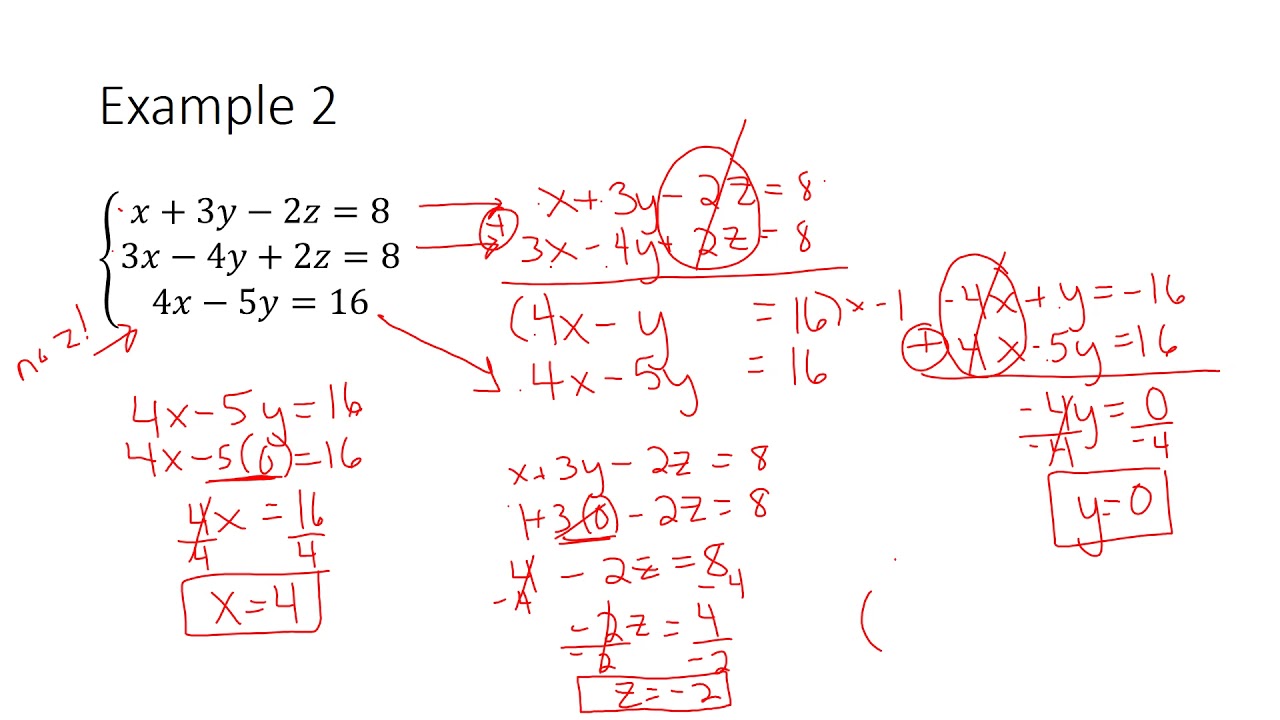 Example 2
x + 3y − 2z = 8
3x − 4y + 2z = 8
4x − 5y = 16
no z!
x + 3y − 2z = 8
+ 3x − 4y + 2z = 8
(4x − y = 16) x − 1
4x − 5y = 16
-4x + y = −16
+ 4x − 5y = 16
−4y = 0
−4 −4
y = 0
4x − 5y = 16
4x − 5(0) = 16
4x = 16
4 4
x = 4
x + 3y − 2z = 8
1 + 3(0) − 2z = 8
4 − 2z = 8
−4 −4
−2z = 4
−2 −2
z = −2
(